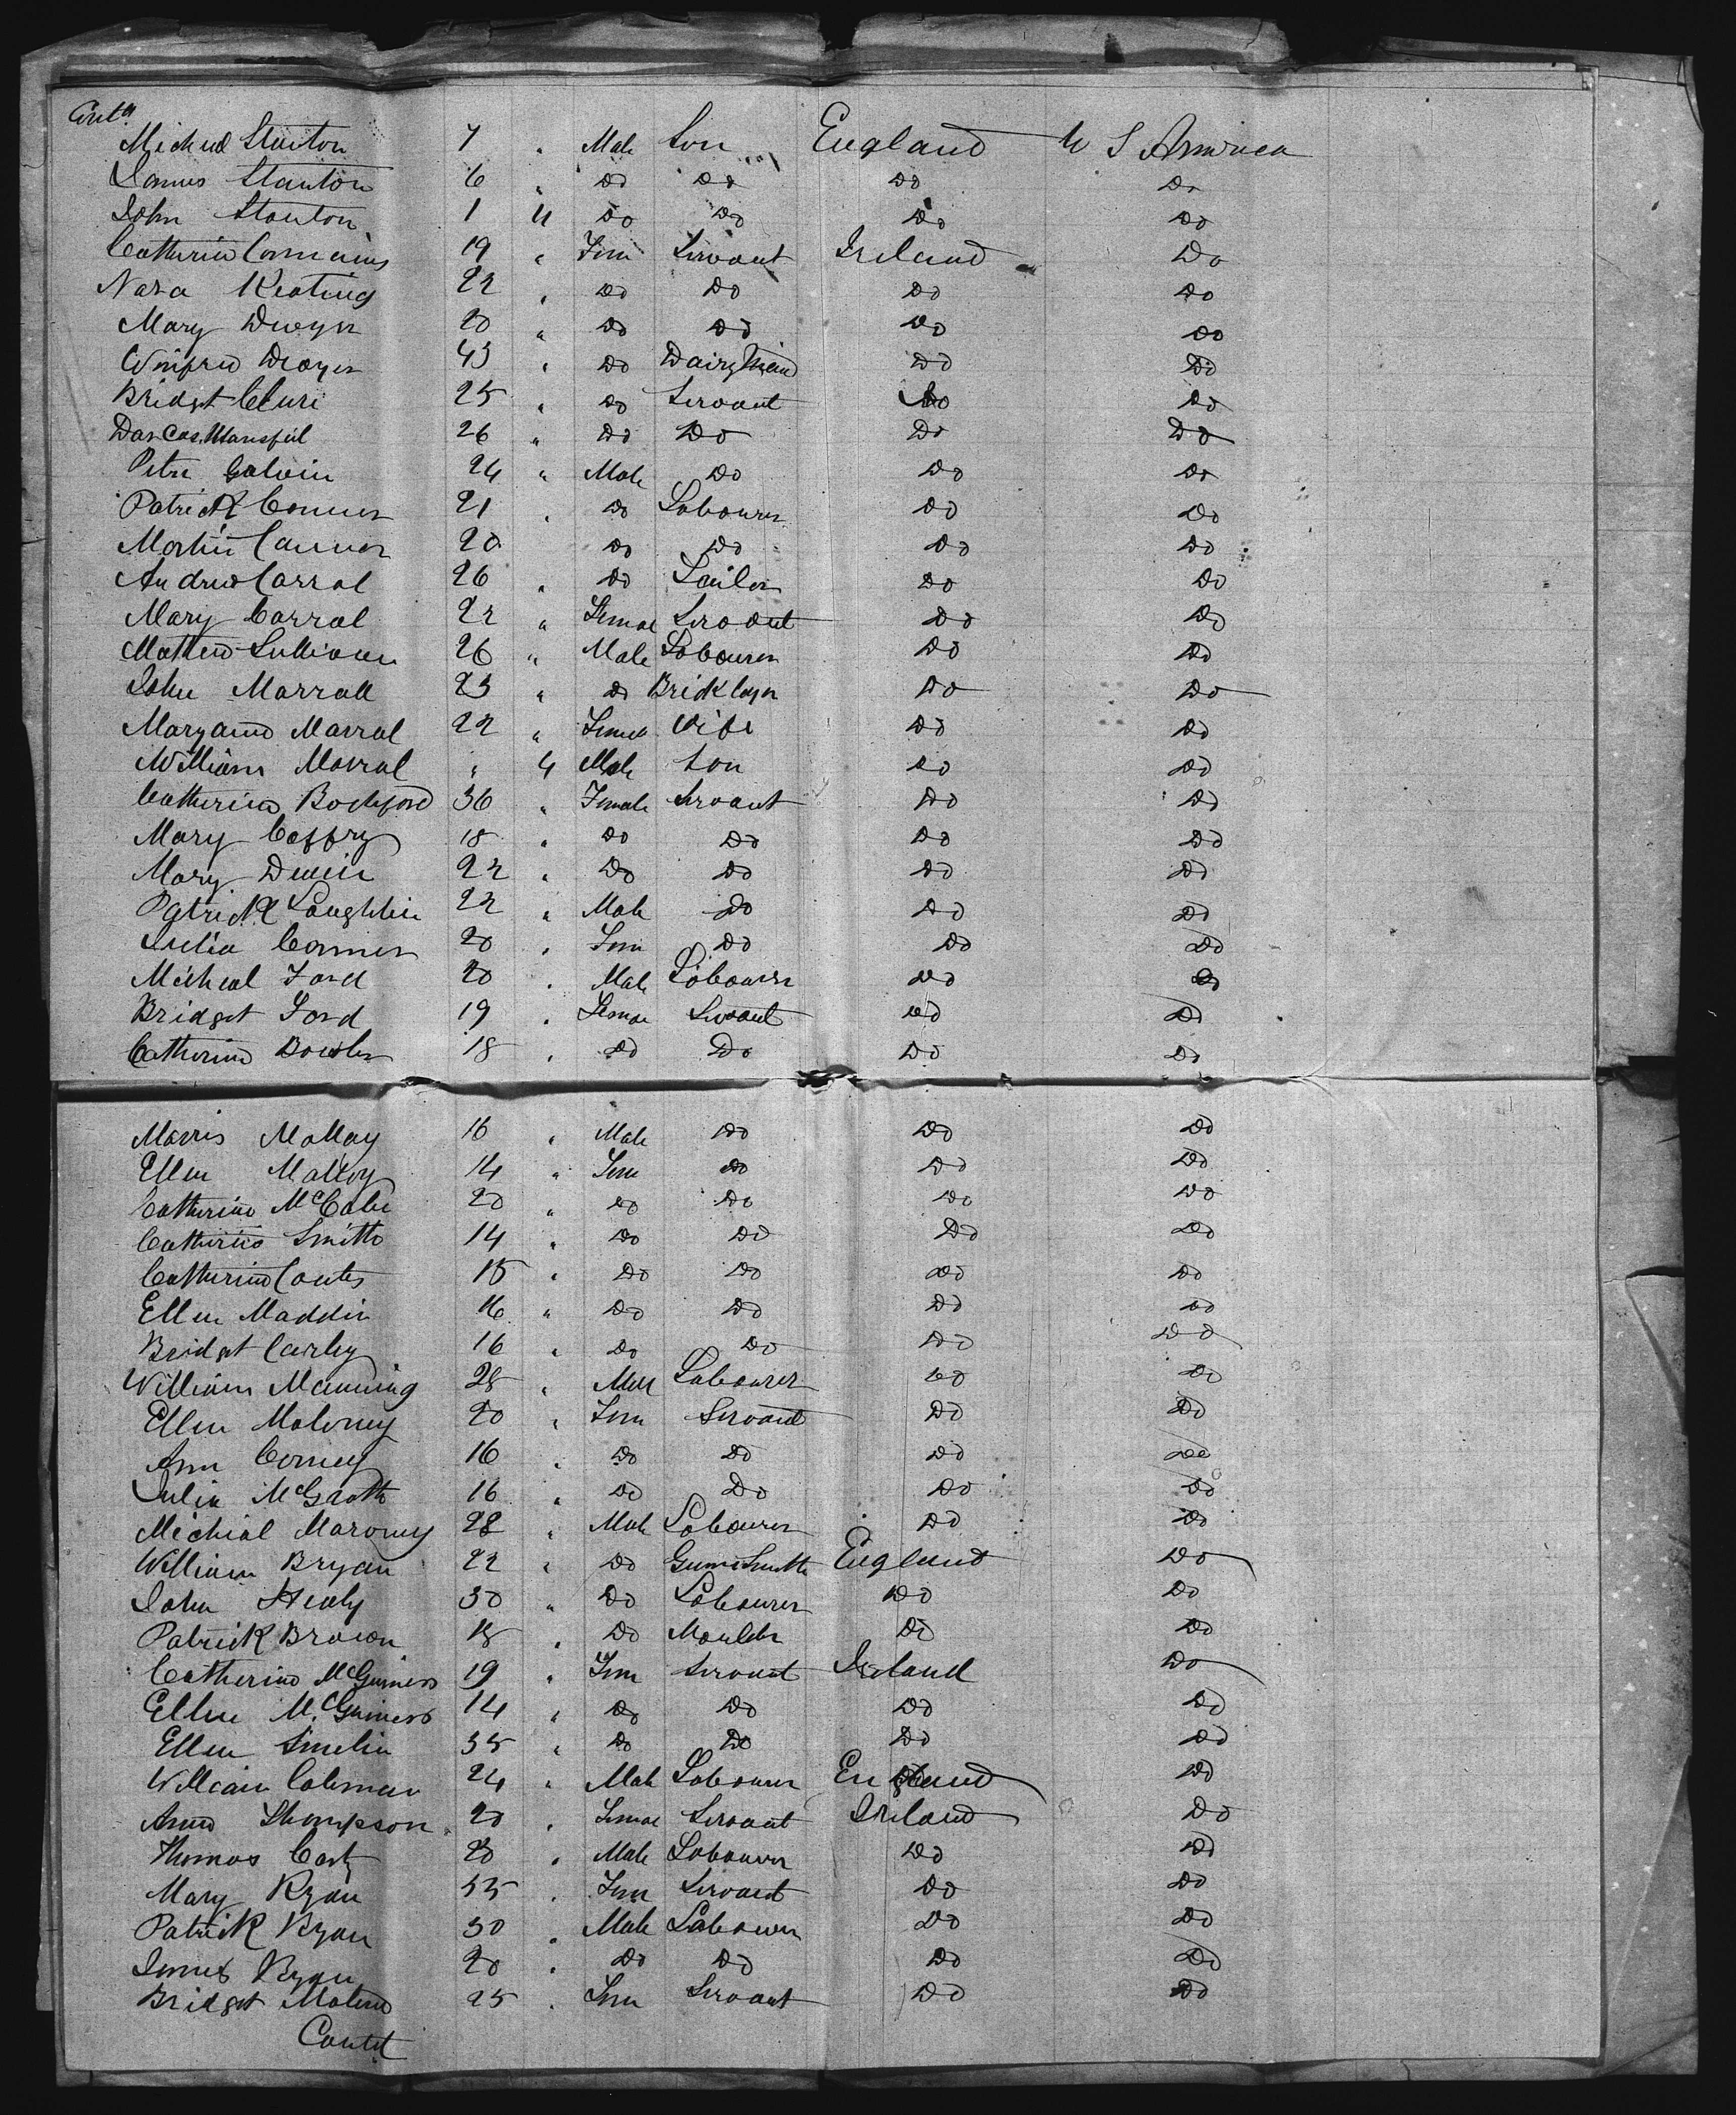 Contd
Michael Stanton 7 " Male Son England U S America
James Stanton 6 " Do Do Do Do
John Stanton 1 11 Do Do Do Do
Catherine 19 " Fem Servant Ireland Do
Nora Keating 22 " Do Do Do Do
Mary Dwyer 20 " Do Do Do Do
Winifred Dwyer 43 " Do Dairy Maid Do Do
Bridget 25 " Do Servant Do Do
Dorcas Mansfiel 26 " Do Do Do Do
Peter Galvin 24 " Male Do Do Do
Patrick Conner 21 " Do Labourer Do Do
Martin Connor 20 Do Do Do Do
Andrew Carral 26 " Do Do Do
Mary Carral 22 " Femal Servant Do Do
Mathew Sullivan 26 " Male Labourer Do Do
John Marrall 23 " Do Bricklayer Do Do
Maryann Marral 22 " Femal Wife Do Do
William Marral " 4 Male Son Do Do
Catherine Rochford 36 " Female Servant Do Do
Mary Caffry 18 " Do Do Do Do
Mary 22 " Do Do Do Do
Patrick Loughlin 22 " Male Do Do Do
Julia Conner 20 " Fem Do Do Do
Micheal Ford 20 " Male Labourer Do Do
Bridget Ford 19 " Femae Servant Do Do
Catherine Bowler 18 " Do Do Do Do
Morris Mallay 16 " Male Do Do Do
Ellen Malloy 14 " Fem Do Do Do
Catherine McCabe 20 " Do Do Do Do
Catherine Smith 14 " Do Do Do Do
Catherine Coates 15 " Do Do Do Do
Ellen Maddin 16 " Do Do Do Do
Bridget Curley 16 " Do Do Do Do
William Manning 28 " Male Labourer Do Do
Ellen Maloney 20 " Fem Servant Do Do
Ann Corney 16 " Do Do Do Do
Julia McGrath 16 " Do Do Do Do
Michial Maroney 28 " Male Labourer Do Do
William Bryan 22 " Do Gunn Smith England Do
John Healy 30 " Do Labourer Do Do
Patrick Brown 18 " Do Moulder Do Do
Catherine McGuiness 19 " Fem Servant Ireland Do
Ellen McGuiness 14 " Do Do Do Do
Ellen 35 " Do Do Do Do
William Coleman 24 " Male Labourer England Do
Anne Thompson 20 " Femae Servant Ireland Do
Thomas Carty 20 " Male Labourer Do Do
Mary Ryan 35 " Fem Servant Do Do
Patrick Ryan 30 " Male Labourer Do Do
James Ryan 20 " Do Do Do Do
Bridget 25 " Fem Servant Do Do
Contd